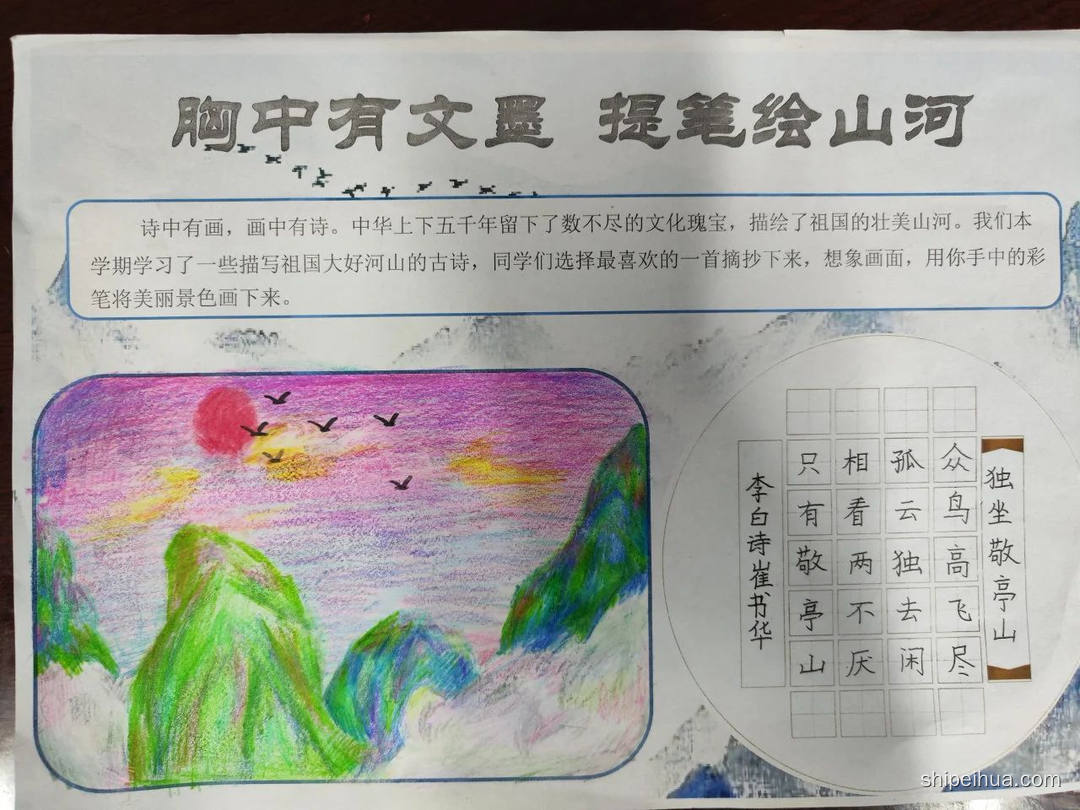 胸中有文墨 提笔绘山河
诗中有画，画中有诗。中华上下五千年留下了数不尽的文化瑰宝，描绘了祖国的壮美山河。我们本
学期学习了一些描写祖国大好河山的古诗，同学们选择最喜欢的一首摘抄下来，想象画面，用你手中的彩
笔将美丽景色画下来。
独坐敬亭山
众鸟高飞尽
孤云独去闲
相看两不厌
只有敬亭山
李白诗崔书华
shipeihua.com